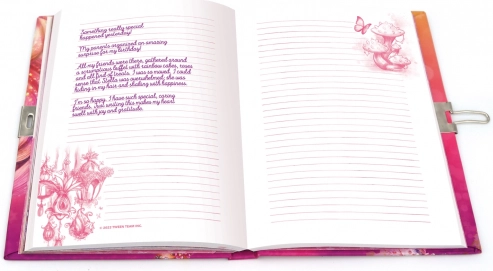 Something really special
happened yesterday!
My parents organized an amazing
surprise for my birthday!
All my friends were there, gathered around
a scrumptious buffet with rainbow cakes, roses
and all kind of treats. I was so moved, I could
sense that Stella was overwhelmed; she was
hiding in my hair and shaking with happiness.
I'm so happy, I have such special, caring
friends. Just writing this makes my heart
swell with joy and gratitude.